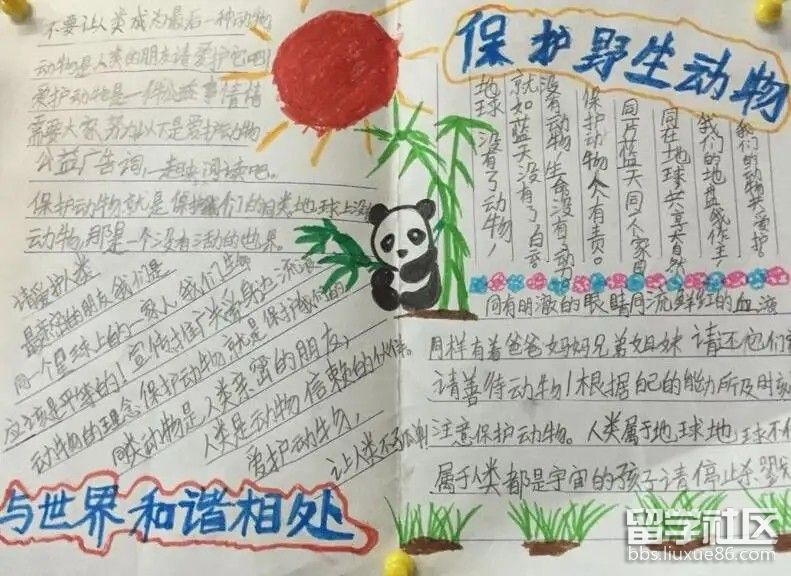 保护野生动物
不要让人类成为最后一种动物
动物是人类的朋友请爱护它吧!
爱护动物是一件公益事情
需要大家努力以下是爱护动物
公益广告词,一起来阅读吧。
保护动物就是保护我们的同类。地球上没
动物,那是一个没有活动的世界。
请爱护人类
最亲密的朋友我们是
同一个星球上的一家人我们生
应该是平等的!宣传推广关爱身边流浪
动物的理念保护动物就是保护我们的
同类动物是人类亲密的朋友,
人类是动物信赖的伙伴。
爱护动物,
让人类不孤单
与世界和谐相处
我们的动物共爱护。
我们的地盘我作主
同在地球共享自然
同片蓝天同个家园
保护动物人人有责。
没有动物!生命没有了动
就如蓝天没有了白云
地球没有了动物!
同有明澈的眼睛同流鲜红的血液
同样有着爸爸妈妈兄弟姐妹 请还他们
请善待动物!根据自己的能力所及时刻
注意保护动物。人类属于地球地球不
属于人类都是宇宙的孩子请停止杀
留学社区
bbs.liuxue86.com